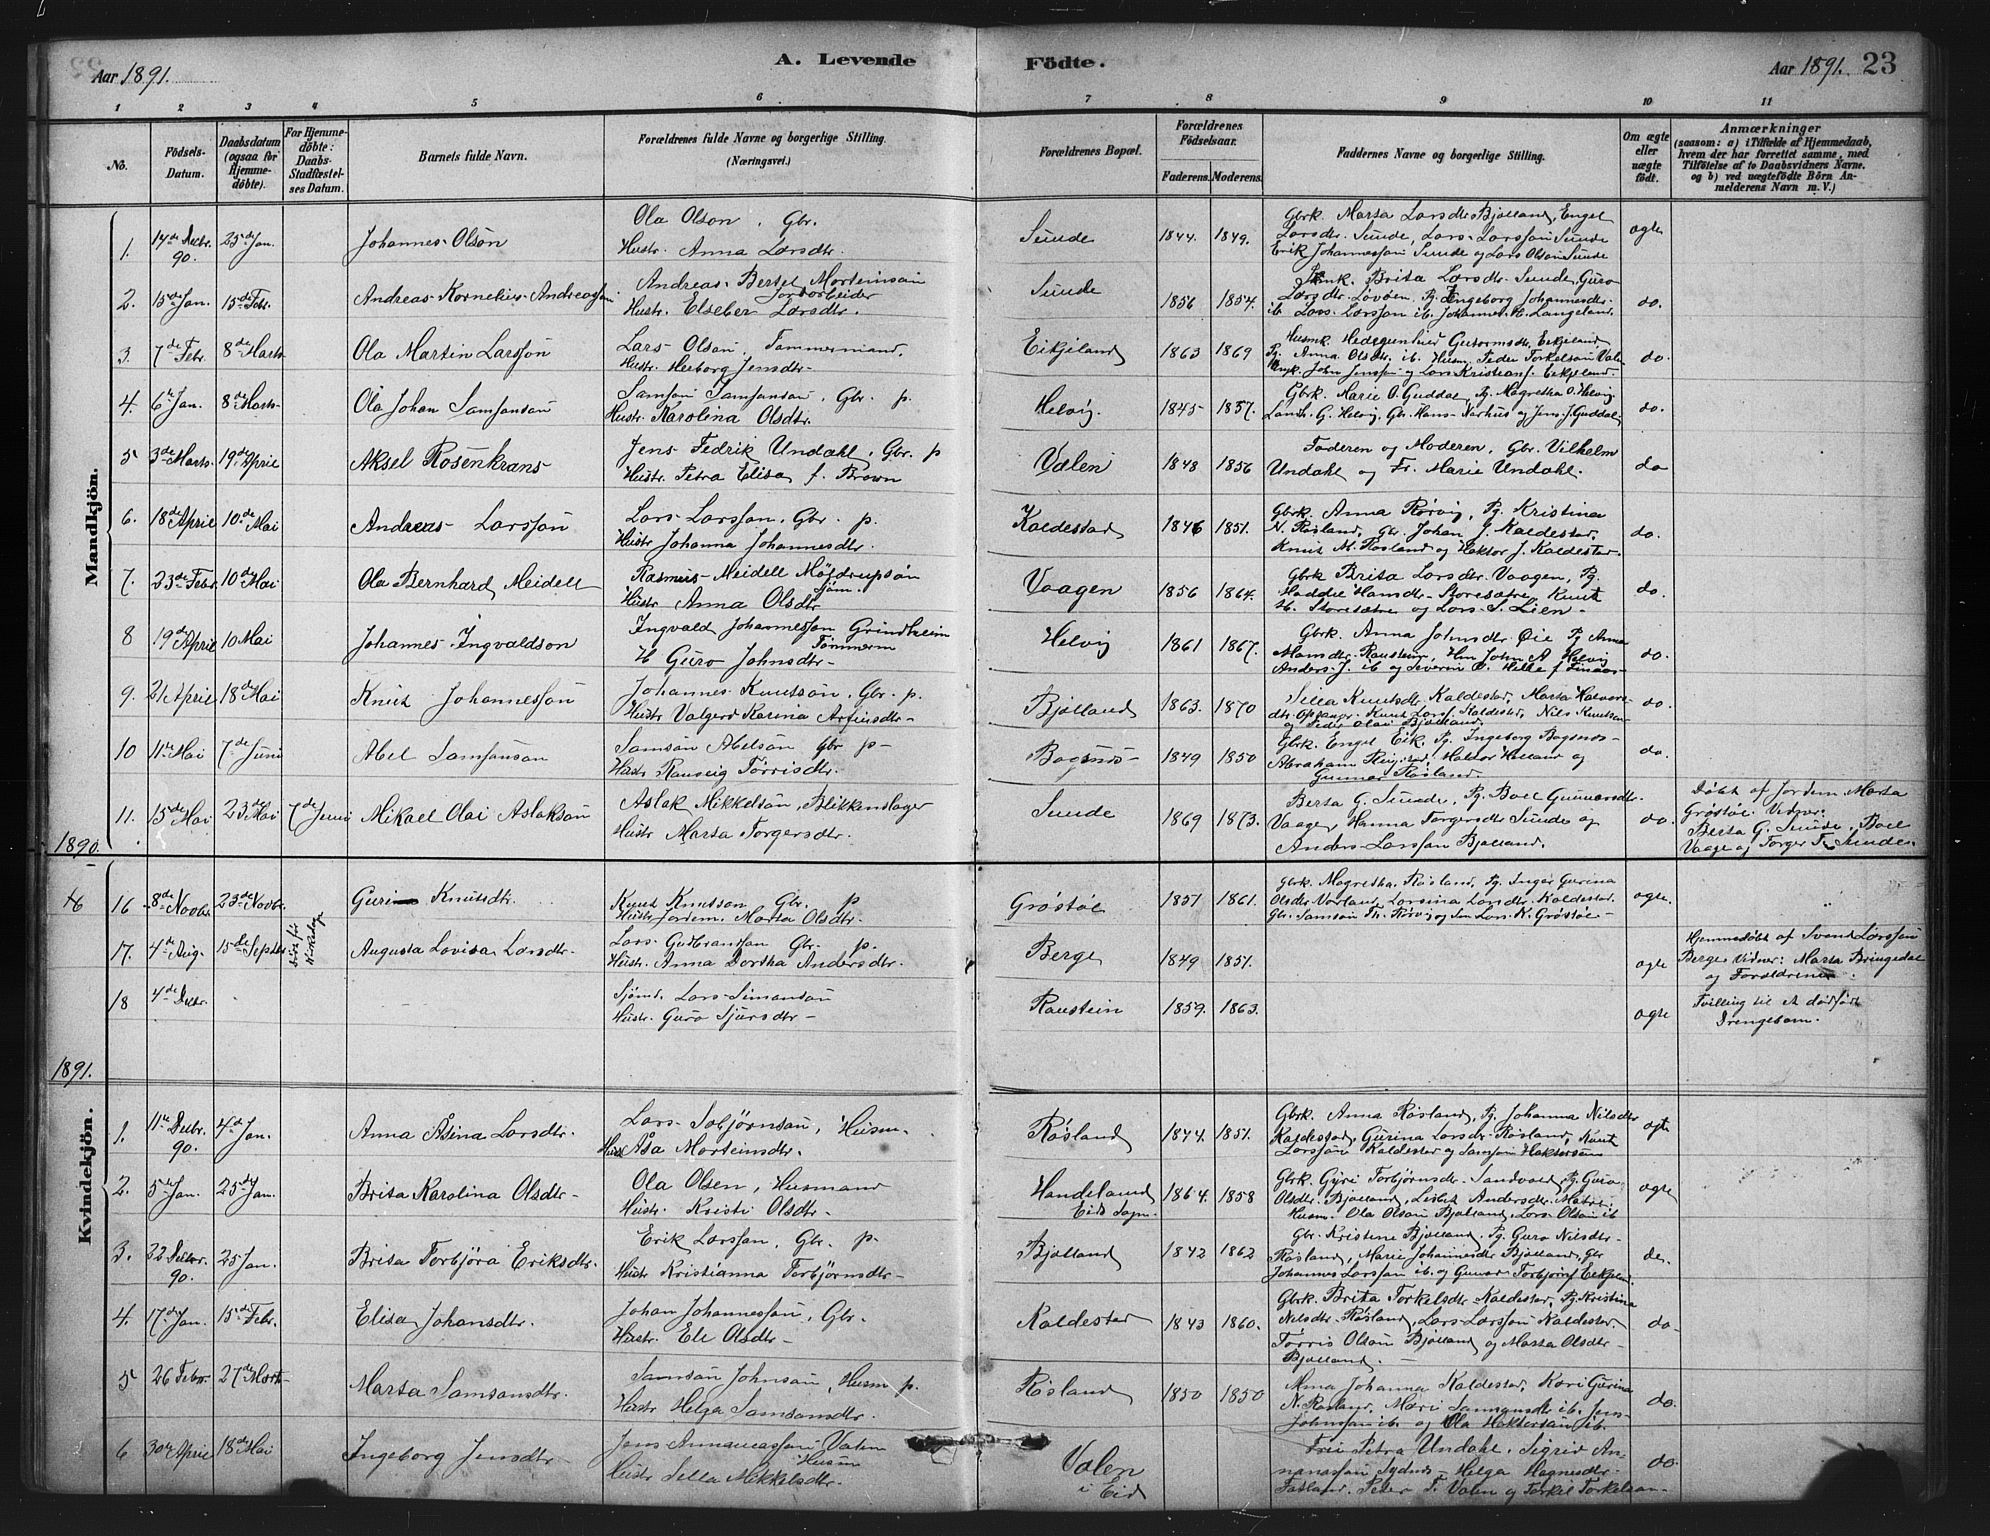 Aar 1891. A. Levende Födte. Aar 1891. 23
1 2 3 4 5 6 7 8 9 10 11
No.
Födsels-Datum.
Daabsdatum (ogsaa for Hjemmedöbte).
For Hjemmedöbte: Daabs-Stadfæstelses Datum.
Barnets fulde Navn.
Forældrenes fulde Navne og borgerlige Stilling.
(Næringsvei.)
Forældrenes Bopæl.
Forældrenes Födselsaar.
Faderens. Moderens.
Faddernes Navne og borgerlige Stilling.
Om ægte eller uægte födt.
Anmærkninger
(saasom: a) i Tilfælde af Hjemmedaab, hvem der har forrettet samme, med Tilföielse af to Daabsvidners Navne, og b) ved uægtefödte Börn Anmelderens Navn m. V.)
Mandkjön.
1. 14de Decbr. 90. 25de Jan. Johannes Olsön
Ola Olson, Gbr.
Hustr. Anna Larsdtr.
Sunde 1844. 1849.
Gbrk. Marta Larsdtr Bjælland, Engel
Larsdtr. Sunde, Lars Larsson Sunde
Erik Johannesson Sunde og Lars Olson Sunde
ægte
2. 15de Jan. 15de Febr. Andreas Kornelius Andreassön
Andreas Bertel Morteinsön
Jordarbeider
Hustr. Elseber Larsdtr.
Sunde 1856 1854.
Brita Larsdtr. Sunde, Guro
Larsdtr. Løvøen, Pg. Ingeborg Johannesdtr
ib. Lars Larsson ib. Johannes H. Langeland.
do.
3. 7de Febr. 8de Marts Ola Martin Larssön
Lars Olson Tømmermand.
Hustr. Herborg Jensdtr
Eikjeland 1863 1869
Husmk. Guttormsdtr. Eikjeland
Pg. Anna Olsdtr. ib. Husm. Peder Torkelson Valen
John Jensson og Lars Kristians. Eikjeland.
do.
4. 6te Jan. 8de Marts Ola Johan Samsonsön
Samson Samsonsön, Gbr. p.
Hustr. Karolina Olsdtr.
Helvig. 1845 1857.
Gbrk. Marie O. Guddal, Pg. Magretha O. Helvig
G. Helvig, Gbr. Hans Nerhus og Jens J. Guddal
do.
5 3de Marts 19de April Aksel Rosenkrans
Jens Fedrik Undahl, Gbr. p
Hustr. Petra Elisa f. Brown
Valen 1848 1856
Faderen og Moderen, Gbr. Vilhelm
Undahl og Fr. Marie Undahl.
do
6. 18de April 10de Mai Andreas Larssön
Lars Larsson, Gbr. p.
Hustr Johanna Johannesdtr.
Kaldestad 1846 1851.
Gbrk. Anna Rørvig, Pg. Kristina
N. Røsland, Gbr. Johan J. Kaldestad,
Knut N. Røsland og Hektor J. Kaldestad.
do.
7. 23de Febr. 10de Mai Ola Bernhard Meidell
Rasmus Meidell Möjdrupsön
Sjöm.
Hustr Anna Olsdtr
Vaagen 1856 1864.
Gbrk Brita Larsdtr. Vaagen, Pg.
Haddie Hansdtr. Storesætre, Knut
H. Storesætre og Lars S. Lien
do.
8 19de April 10 Mai Johannes Ingvaldson
Ingvald Johannesson Grindheim
Tömmerm
H. Guro Johnsdtr
Helvig 1861 1867.
Gbrk. Anna Johnsdtr Øie Pg Anna
Hansdtr. Raustein, Hm John A. Helvig
Anders J. ib og Severin O. Helle
do.
9. 21 April 18de Mai Knut Johannessön
Johannes Knutsön, Gbr. p.
Hustr Valgerd Karina Arfinsdtr
Bjælland 1863. 1870
Silla Knutsdtr, Kaldestad, Marta Halvors-
dtr. Opsanger. Knut Larss. Kaldestad, Nils Knutson
og Peder Olai Bjælland
do.
10 11te Mai 7de Juni Abel Samsonson
Samson Abelsön Gbr p
Hustr Ranveig Törrisdtr.
Bogsnes 1849 1850
Gbrk. Engel Eik, Pg. Ingeborg Bogsnes
Abraham Ringstad, Haldor Helland og
Gunnar Røsland.
do.
11. 15de Mai 23de Mai 7de Juni Mikael Olai Aslaksön
Aslak Mikkelsön, Blikkenslager
Hustr Marta Torgersdtr.
Sunde 1869 1873.
Berta G. Sunde, Pg. Boel Gunnarsdtr.
Vaage, Hanna Torgersdtr Sunde og
Anders Larsson Bjælland.
do.
Døbt af Jordem. Marta
Grøstøl. Vidner:
Berta G. Sunde, Boel
Vaage og Torger T. Sunde.
1890.
16 8de Novbr. 23de Novbr. Guri Knutsdtr.
Knut Knutson Gbr. p
Hustr Jordem. Marta Olsdtr.
Grøstøl 1851 1861.
Gbrk. Magretha Røsland, Pg. Inger Gurina
Olsdtr Vorland, Larsina Larsdtr. Kaldestad.
Gbr. Samson Th. Rørvig og Lars K. Grøstøl
ægte.
17. 4de Aug. 15de Septbr. Døde før Kirkedaab Augusta Lovisa Larsdtr.
Lars Gudbransson Gbr. p.
Hustr. Anna Dorthea Andersdtr.
Berge 1849 1851.
ægte
Hjemmedøbt af Svend Larsson
Berge Vidner: Marta Bringedal
og Forældrene.
18 4de Decbr.
Sjömd. Lars Simonson
Hustr. Guro Sjursdtr
Raustein 1859. 1863.
ægte
Tvilling til et dødfødt
Drengebarn.
1891.
Kvindekjön.
1. 11te Decbr. 90. 4de Jan. Anna Åsina Larsdtr.
Lars Tobjörnson, Husm.
Hustr Åsa Morteinsdtr.
Røsland 1844. 1851.
Gbrk. Anna Røsland, Pg. Johanna Nilsdtr
Kaldestad, Gurina Larsdtr Røsland, Knut
Larsson Kaldestad og Samson Haktorson
ægte
2. 5te Jan. 25de Jan. Brita Karolina Olsdtr
Ola Olsen, Husmand
Hustr. Kristi Olsdtr
Handeland
Eids Sogn. 1864. 1858
Gbrk. Gyri Torbjørnsdtr. Sandvold, Pg. Guro
Olsdtr. Bjælland, Lisbet Andersdtr. Matre.
Husm. Ola Olson Bjælland, Lars Olson ib
ægte
3. 22 Decbr. 90. 25 Jan. Brita Torbjöra Eriksdtr.
Erik Larsson, Gbr. p.
Hustr Kristianna Torbjörnsdtr
Bjælland 1842 1862
Gbr. Kristene Bjælland, Pg. Guro Nilsdtr
Røsland, Marie Johannesdtr Bjælland, Gbr
Johannes Larsson ib. og Gunnar Torbjörns. Eikjeland
do.
4. 17de Jan. 15de Febr. Elisa Johansdtr.
Johan Johannesson, Gbr.
Hustr. Eli Olsdtr
Kaldestad 1843 1860.
Gbrk. Brita Torkelsdtr Kaldestad, Pg. Kristina
Nilsdtr. Røsland, Lars Larsson Kaldestad.
Törris Olson Bjælland og Marta Olsdtr
Bjælland.
do
5 26 Febr. 27de Marts Marta Samsonsdtr.
Samson Johnson, Husm p.
Hustr Helga Samsonsdtr.
Røsland 1850 1850
Anna Johanna Kaldestad, Kari Gurina
N. Røsland, Mari Samsonsdtr ib. Jens
Johnson ib. og Ola Haktorson ib.
do.
6. 30te April 18de Mai Ingeborg Jensdtr
Jens Annanasson Valen
Husm
Hustr Sella Mikkelsdtr.
Valen
i Eid
Frue Petra Undahl, Sigrid An-
nanasson Sydnes, Helga Hagnesdtr
Fatland. Peder T. Valen og Torkel Torkelson
do.